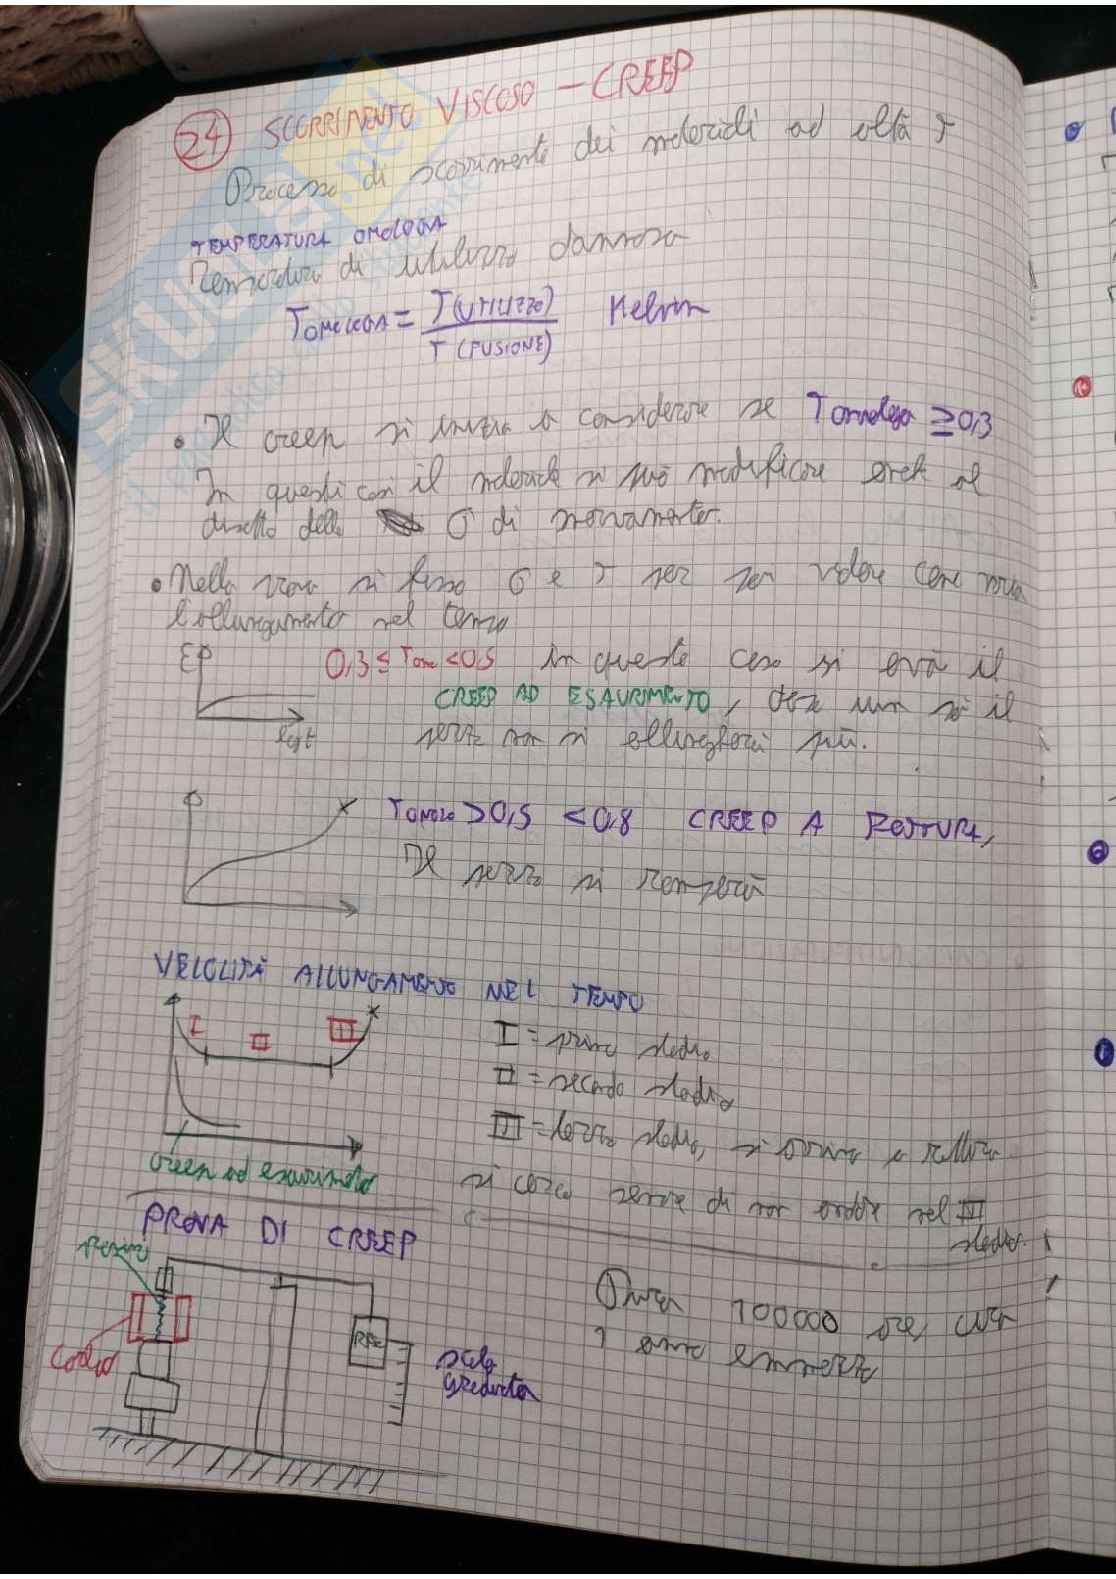 24 SCORRIMENTO VISCOSO - CREEP
Processo di scorrimento dei materiali ad alta T
TEMPERATURA OMOLOGA
Temperatura di utilizzo dannosa
TOMOLOGA = T(UTILIZZO) / T(FUSIONE) Kelvin
• Il creep si inizia a considerare se Tomologa ≥ 0,3
In questi casi il materiale si può modificare anche al
disotto della σ di snervamento.
• Nella prova si fissa σ e T per poi vedere come varia
l'allungamento nel tempo
0,3 ≤ Tomo < 0,5 In questo caso si avrà il
CREEP AD ESAURIMENTO, dove un po' il
pezzo non si allungherà più.
log t
Tomolo > 0,5 < 0,8 CREEP A ROTTURA,
Il pezzo si romperà
VELOCITÀ ALLUNGAMENTO NEL TEMPO
I II III
I = primo stadio
II = secondo stadio
III = terzo stadio, si arriva a rottura
si cerca sempre di non andare nel III
stadio.
creep ad esaurimento
PROVA DI CREEP
Provino
Dura 100000 ore, circa
scala
graduata